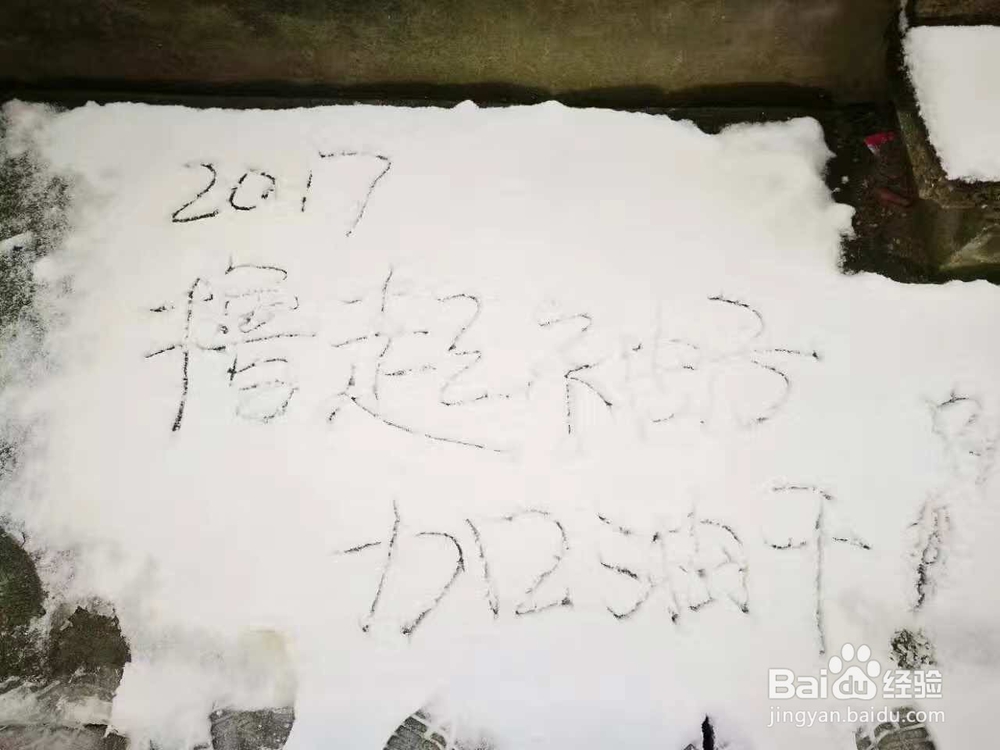 2017
撸起袖子
加油干！
Bai du 经验
jingyan.baidu.com